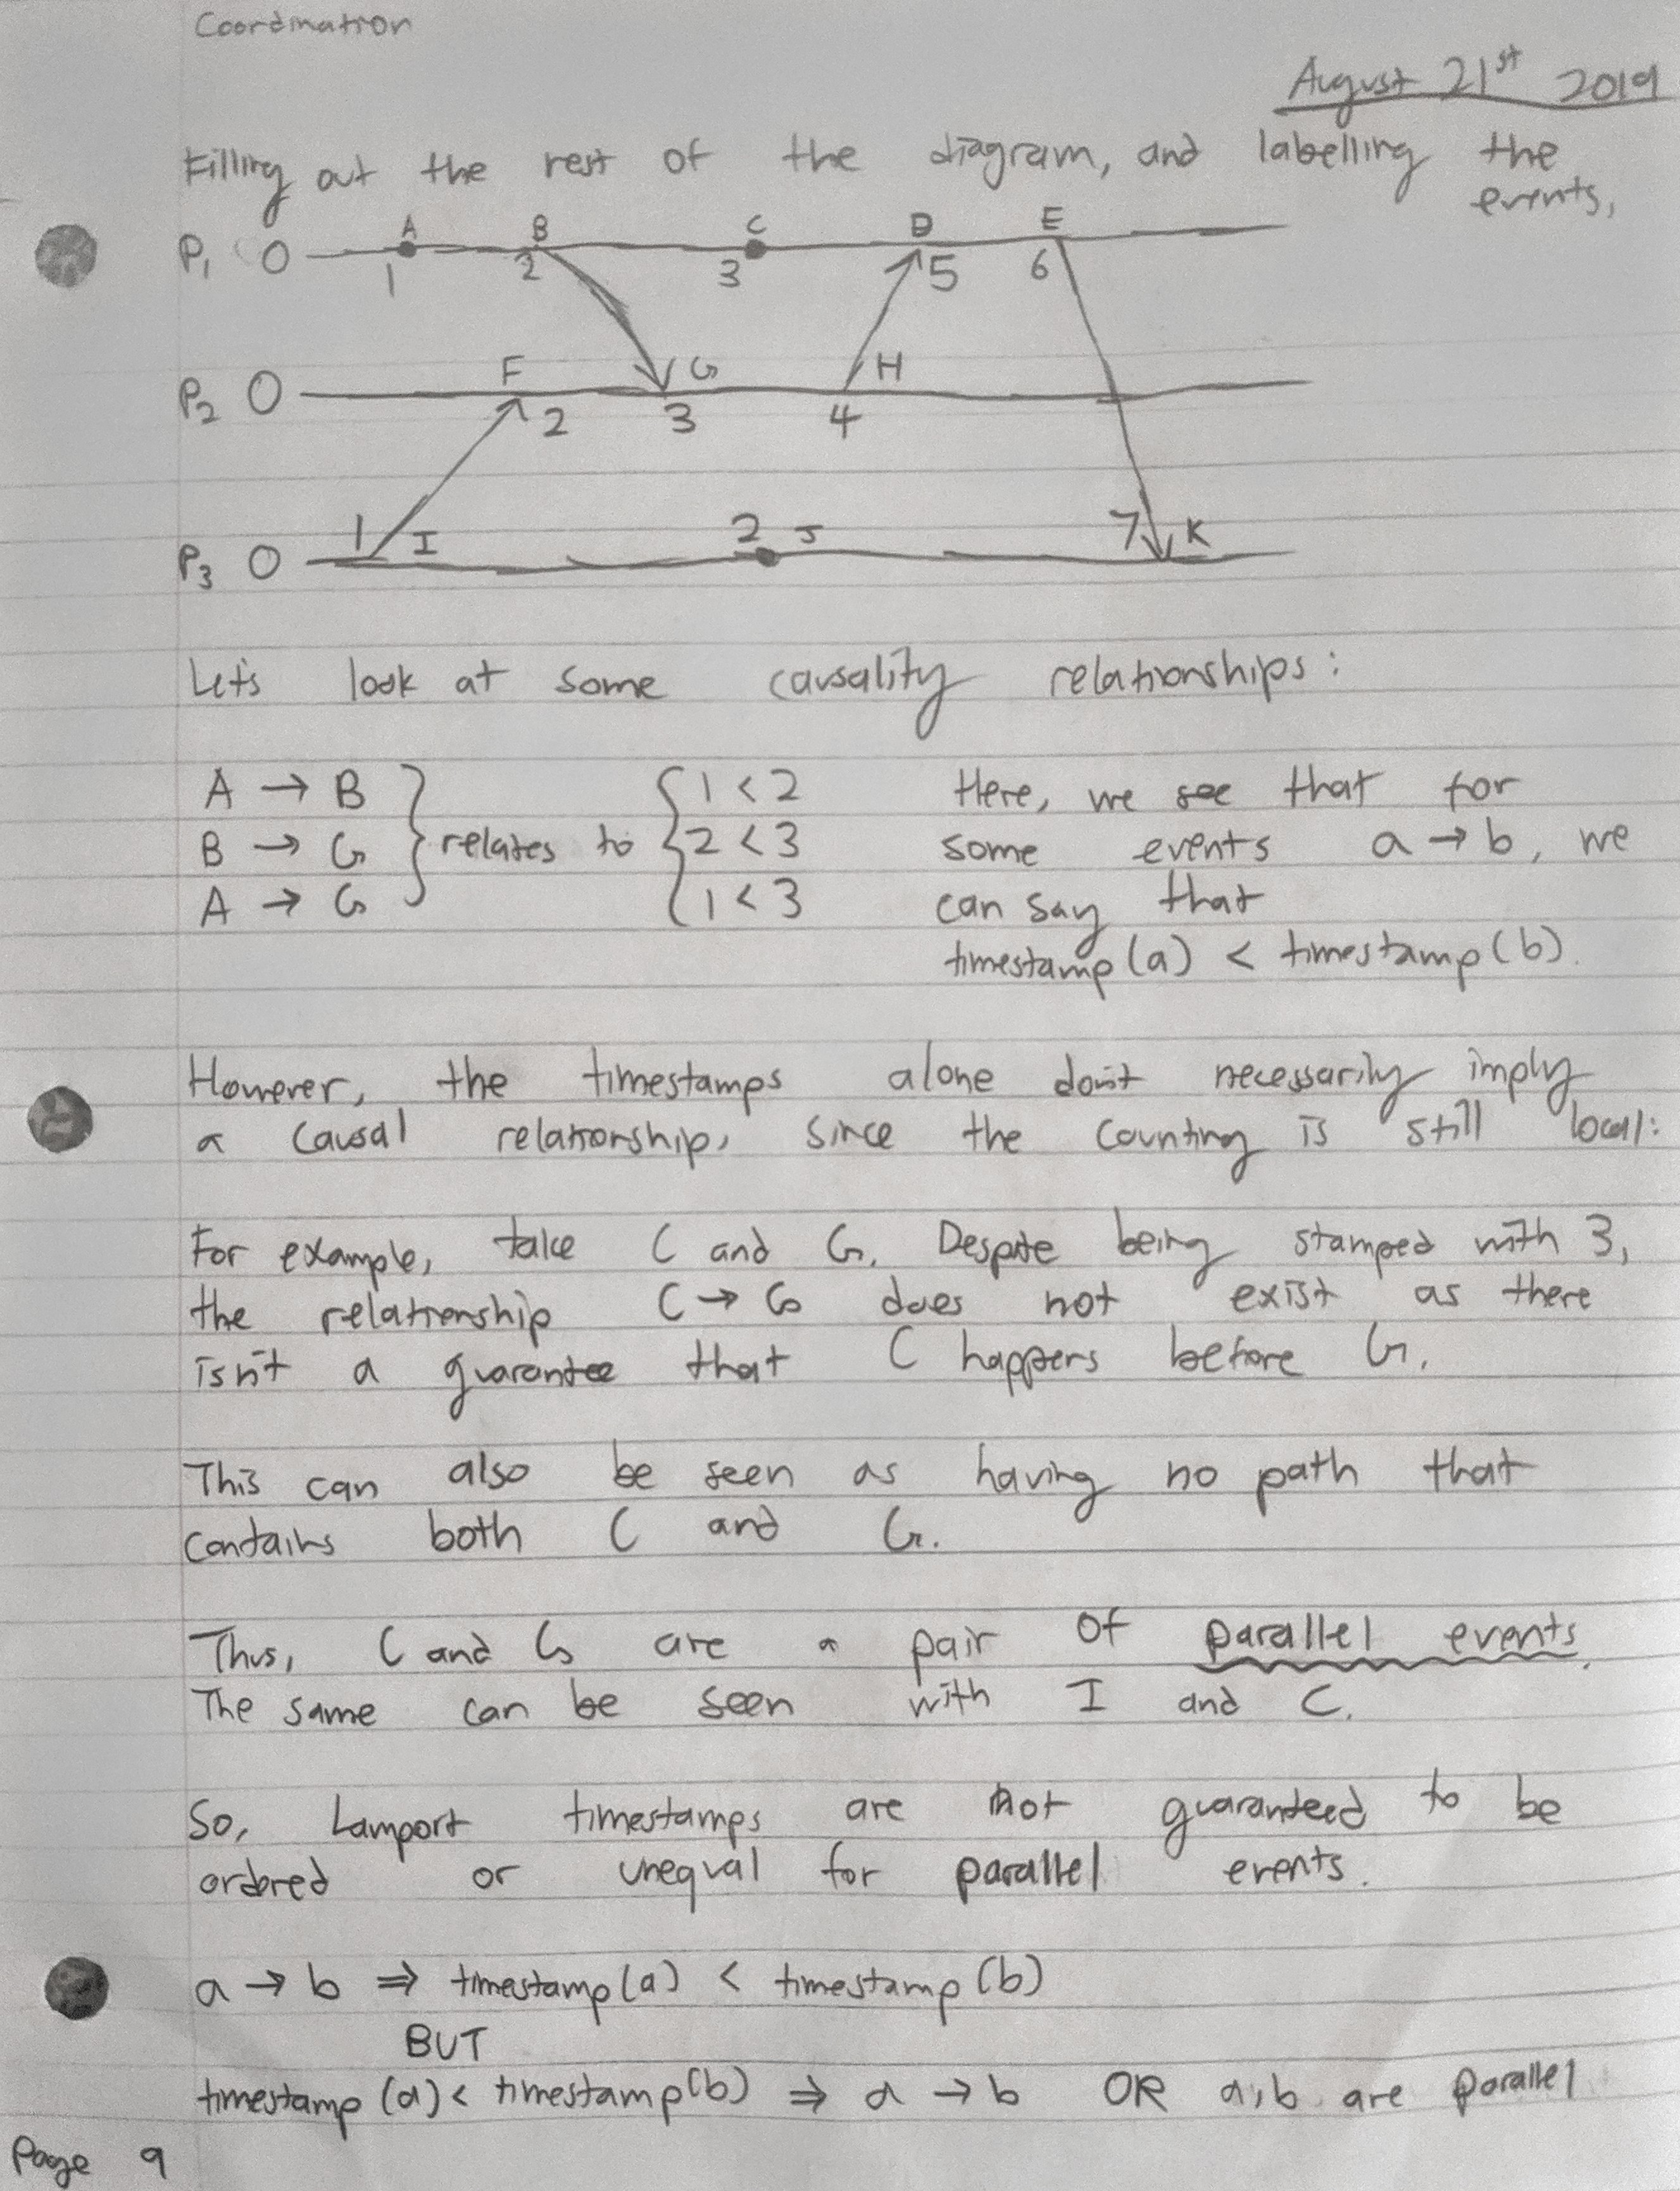 Coordination
August 21st 2019
Filling out the rest of the diagram, and labelling the
events,
A B C D E
P1 0 1 2 3 5 6
F G H
P2 0 2 3 4
1 I 2 J 7 K
P3 0
Let's look at some causality relationships:
A → B } relates to { 1 < 2 Here, we see that for
B → G 2 < 3 some events a → b, we
A → G 1 < 3 can say that
timestamp(a) < timestamp(b).
However, the timestamps alone don't necessarily imply
a causal relationship, since the counting is still local:
For example, take C and G. Despite being stamped with 3,
the relationship C → G does not exist as there
isn't a guarantee that C happens before G.
This can also be seen as having no path that
contains both C and G.
Thus, C and G are a pair of parallel events.
The same can be seen with I and C.
So, Lamport timestamps are not guaranteed to be
ordered or unequal for parallel events.
a → b ⇒ timestamp(a) < timestamp(b)
BUT
timestamp(a) < timestamp(b) ⇒ a → b OR a,b are parallel
Page 9